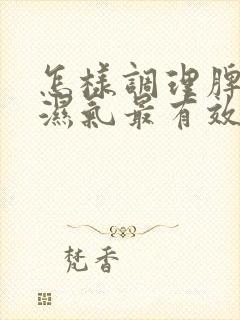 怎樣調理脾
濕氣最有效
梵香